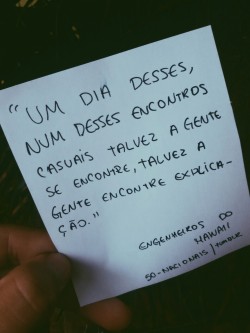 “UM DIA DESSES,
NUM DESSES ENCONTROS
CASUAIS TALVEZ A GENTE
SE ENCONTRE, TALVEZ A
GENTE ENCONTRE EXPLICA-
ÇÃO.”
ENGENHEIROS DO
HAWAII
SO-NACIONAIS/TUMBLR